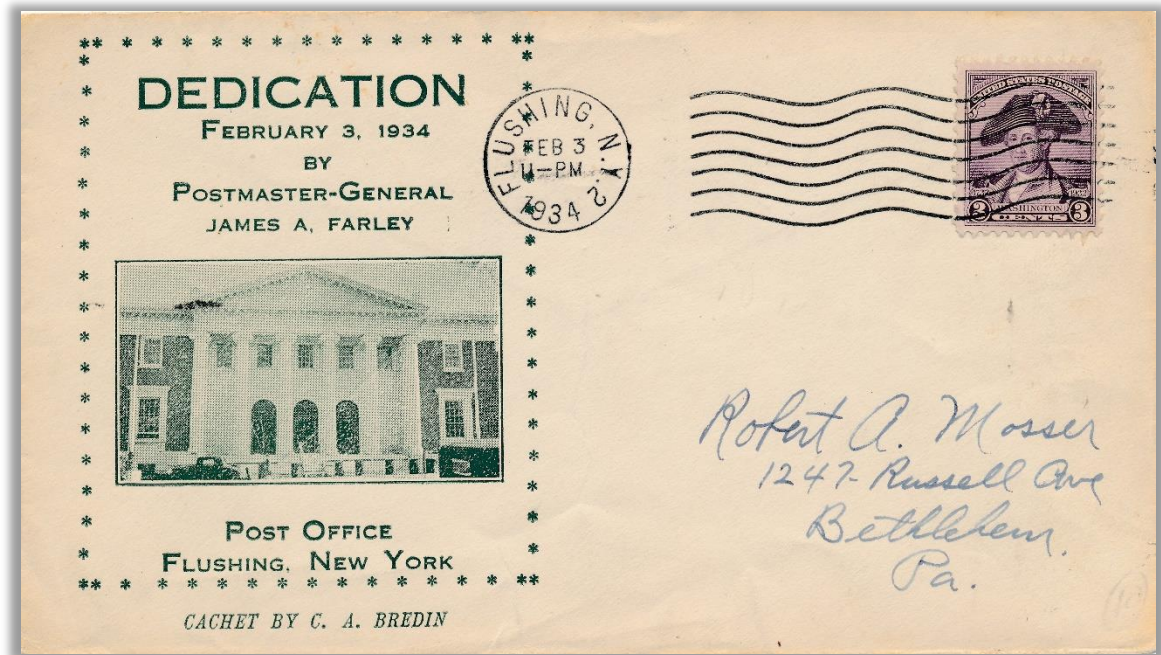 DEDICATION
FEBRUARY 3, 1934
BY
POSTMASTER-GENERAL
JAMES A. FARLEY
POST OFFICE
FLUSHING, NEW YORK
CACHET BY C. A. BREDIN
FLUSHING, N.Y. 2
FEB 3
11-PM
1934
UNITED STATES POSTAGE
WASHINGTON
3 CENTS 3
Robert A. Mosser
1247 - Russell Ave
Bethlehem,
Pa.